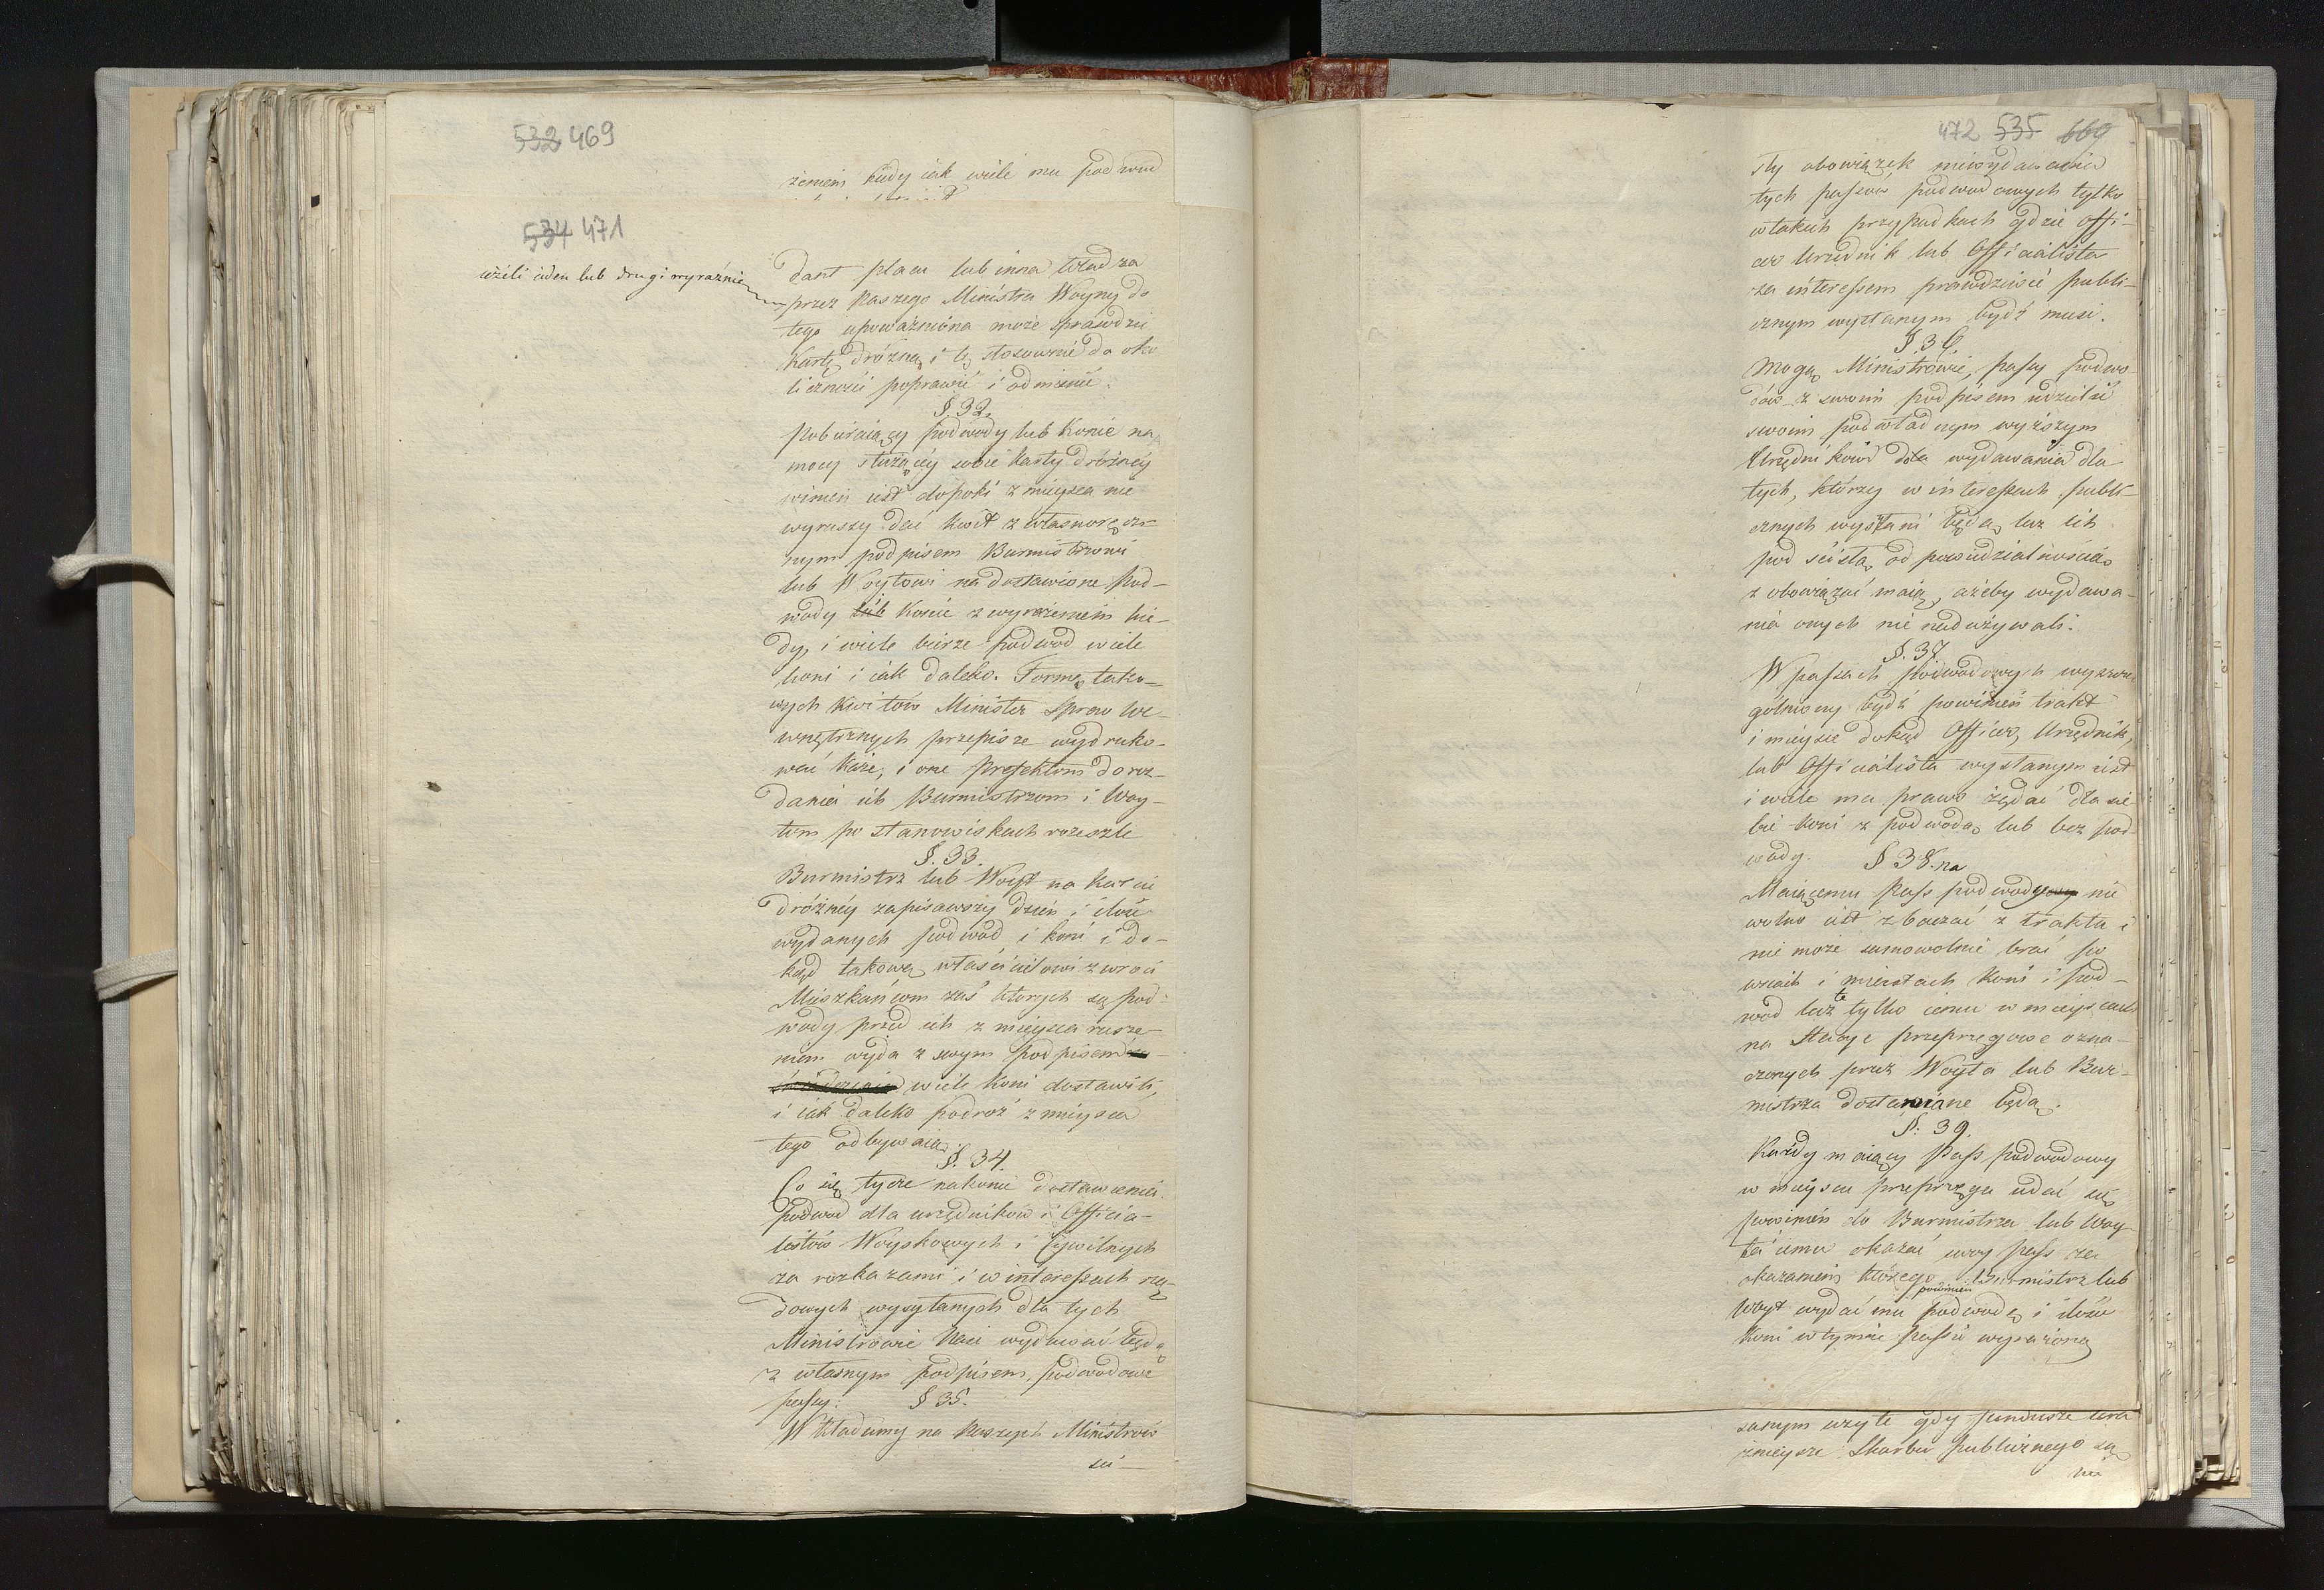 532 469
żeniem kiedy iak wiele mu podwod
534 471
ieżeli ieden lub drugi wyraźnie
dant placu lub inna Władza
przez Naszego Ministra Woyny do
tego upoważniona może sprawdzić
Kartę drożną i tę stosownie do oko
liczności poprawić i odmienić.
§. 32.
Pobieraiący podwody lub Konie na
mocy służącéy sobie Karty drożnéy
winien iest dopoki z mieysca nie
wyruszy dać kwit z własnorę cz-
nym podpisem Burmistrzowi
lub Woytowi na dostawione Pod-
wody lub Konie z wyrażeniem kie-
dy, i wiele bierze podwod wiele
koni i iak daleko. Formę tako-
wych Kwitów Minister Spraw We-
wnętrznych przepisze wydruko-
wać każe, i one Prefektom do roz-
dania ich Burmistrzom i Woy-
tom po stanowiskach rozeszle
§. 33.
Burmistrz lub Woyt na karcie
drożnéy zapisawszy dzień i ilość
wydanych podwod i koni i do-
kąd takową właścicielowi zwroci
Mieszkańcom zaś ktorych są pod-
wody przed ich z mieysca rusze-
niem wyda z swym podpisem
wiele koni dostawili,
i iak daleko podroż z mieysca
tego odbywaią.
§. 34.
Co się tycze nakonie dostawienia
podwod dla urzędnikow i Officia-
listów Woyskowych i Cywilnych
za rozkazami i w interessach rzą-
dowych wysyłanych dla tych
Ministrowie Nasi wydawać będą
z własnym podpisem, podwodowe
passy:
§ 35.
Wkładamy na Naszych Ministrów
sci-
472 535 669
sły obowiązek niewydawania
tych passow podwodowych tylko
w takich przypadkach gdzie offi-
cer Urzędnik lub Officialista
za interessem prawdziwie publi-
cznym wysłanym bydź musi.
§. 36.
Mogą Ministrowie, passy podwo
dów z swoim podpisem udzielić
swoim podwładnym wyższym
Urzędnikow dla wydawania dla
tych, ktorzy w interessach publi-
cznych wysłani będą, lecz ich
pod ścisłą odpowiedzialnością
z obowiązać maią, ażeby wydawa-
nia onych nie nadużywali.
§. 37.
W passach podwodowych wyszcze
gólniony bydź powinien trakt
i mieysce dokąd Officer, Urzędnik,
lub Officialista wysłanym iest
i wiele ma prawo żądać dla sie
bie koni z podwodą lub bez pod-
wody.
§ 38. na
Maiącemu Pass podwody nie
wolno iest zbaczać z traktu i
nie może samowolnie brać po
wsiach i miastach koni i pod-
wod lecz te tylko iemu w mieyscach
na Stacye przeprzęgowe ozna-
czonych przez Woyta lub Bur-
mistrza dostawiane będą.
§. 39.
Każdy maiący Pass podwodowy
w mieyscu przeprzęgu udać się
powinien do Burmistrza lub Woy
ta iemu okazać swoy pass za
okazaniem którego Burmistrz lub
powinien
Woyt wydać mu podwodę i ilość
koni w tymże passie wyrażoną
samym użyte gdy fundusze
znieysze Skarbu publicznego są